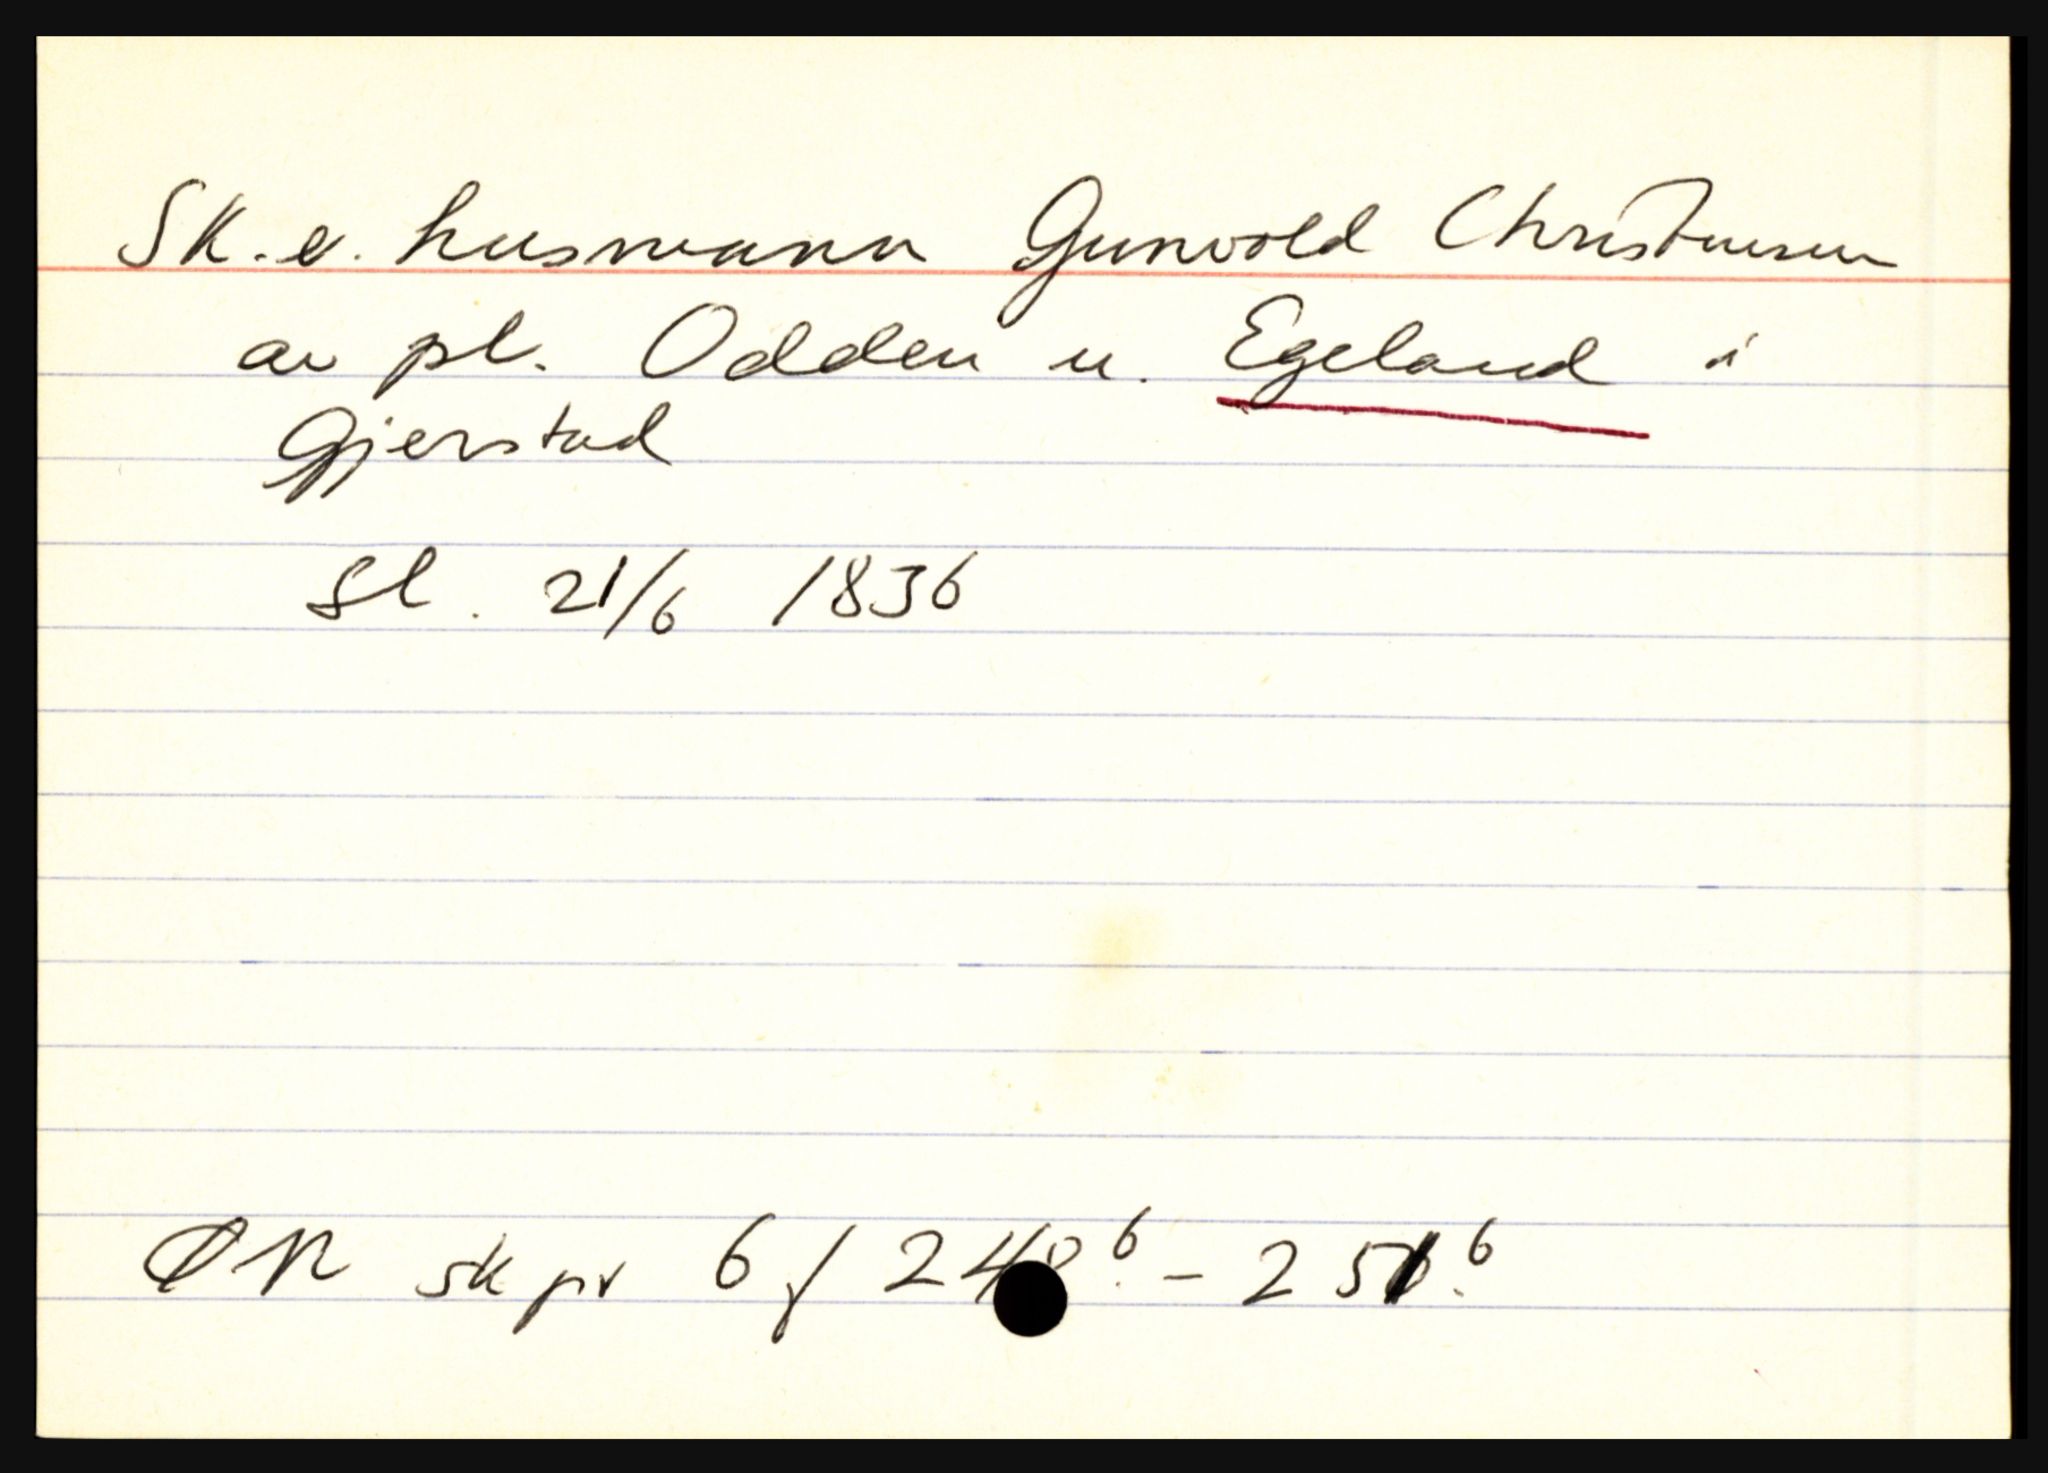 Sk. e. husmann Gunvold Christensen
av pl. Odden u. Egeland i
Gjerstad
Sl. 21/6 1836
ØN sk pr 6 f 248 6. - 251 6.